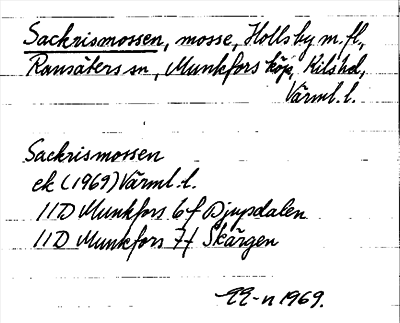 Sackrismossen, mosse, Hollsby m. fl.,
Ransäters sn, Munkfors köp, Kilshd,
Värml. l.
Sackrismossen
ek (1969) Värml. l.
11D Munkfors 6f Djupdalen
11D Munkfors 7f Skärgen
1969.